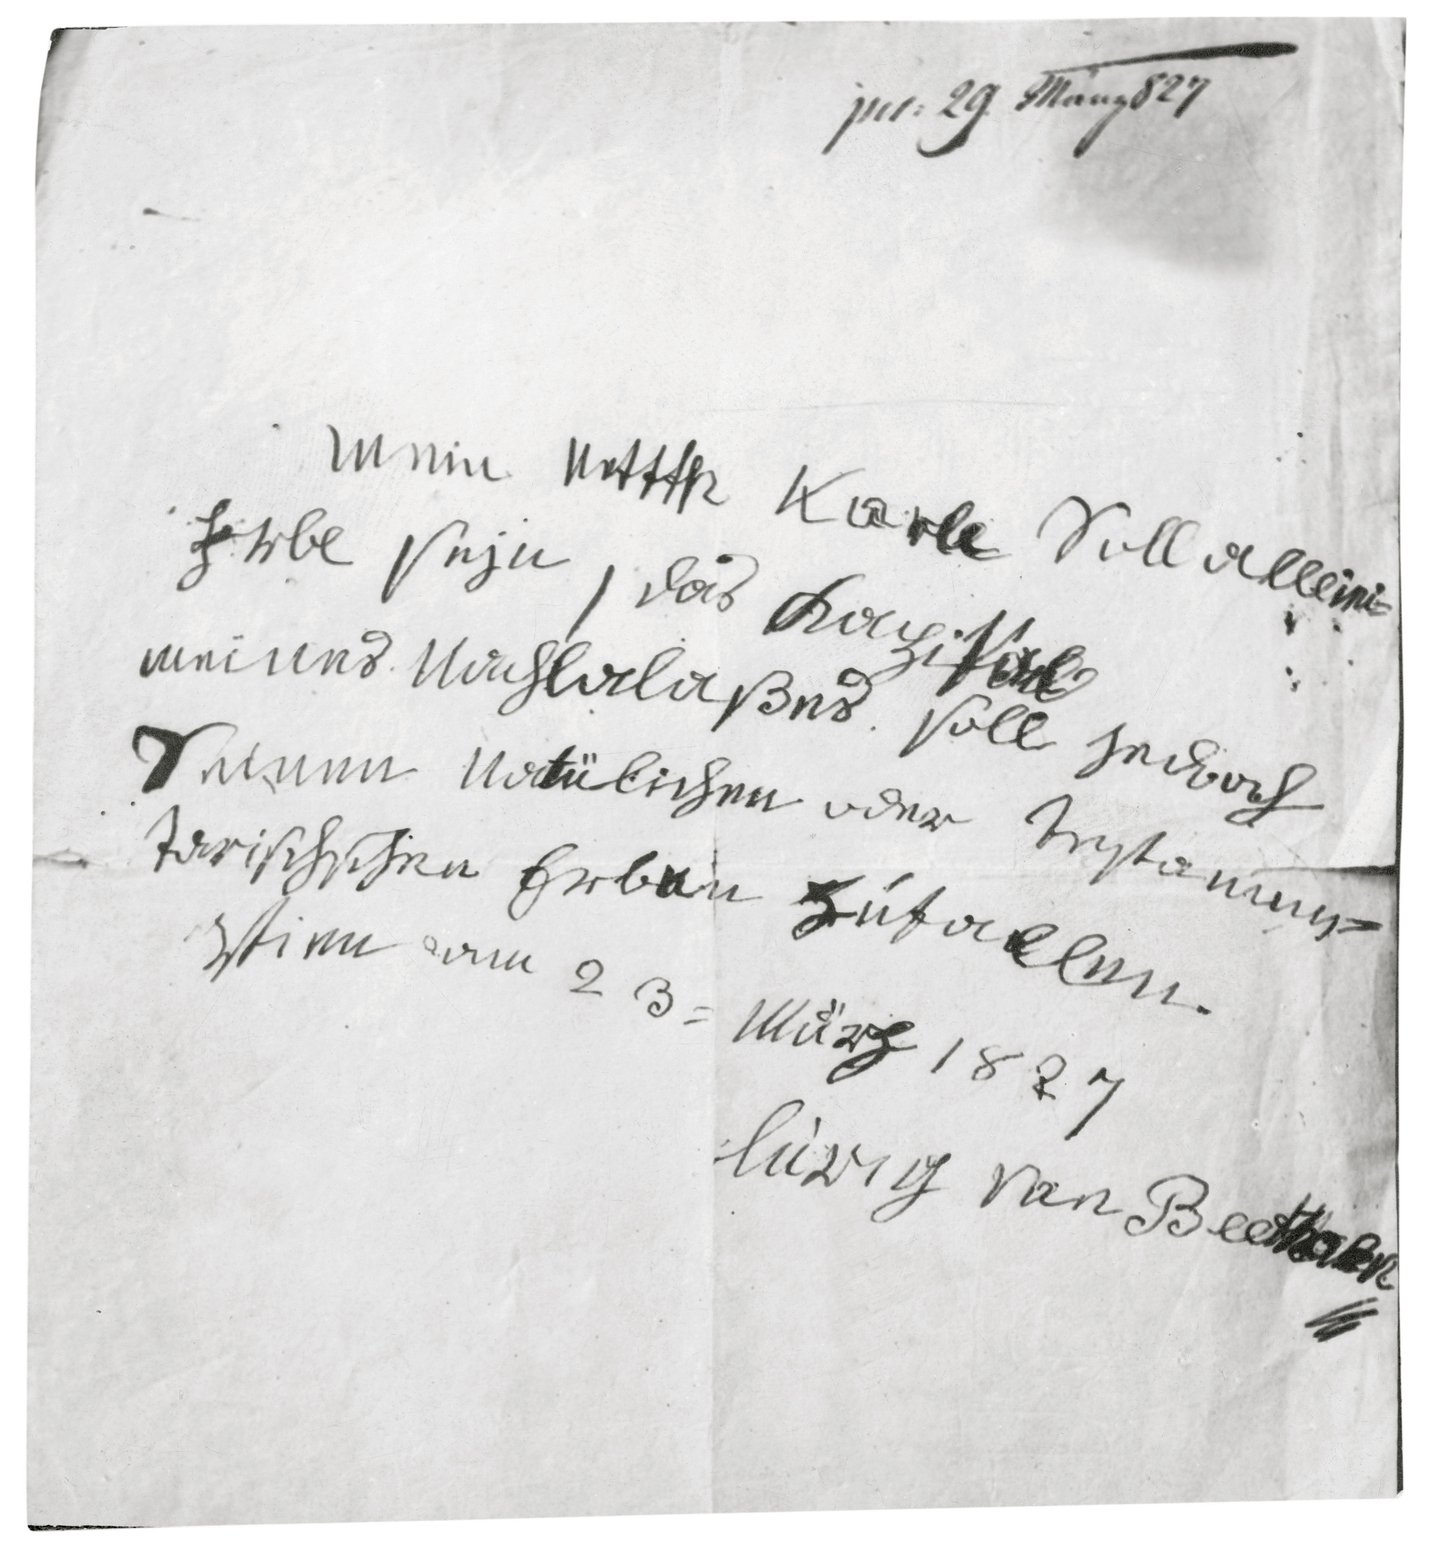 pr: 29 März 827
Mein Neffe Karl Soll alleini=
Erbe seyn, das Kapital
meines Nachlalaßes soll jedoch
Seinen natülichen oder testamen=
tarischschen Erben zufallen.
Wien am 23= März 1827
luwig van Beethoven